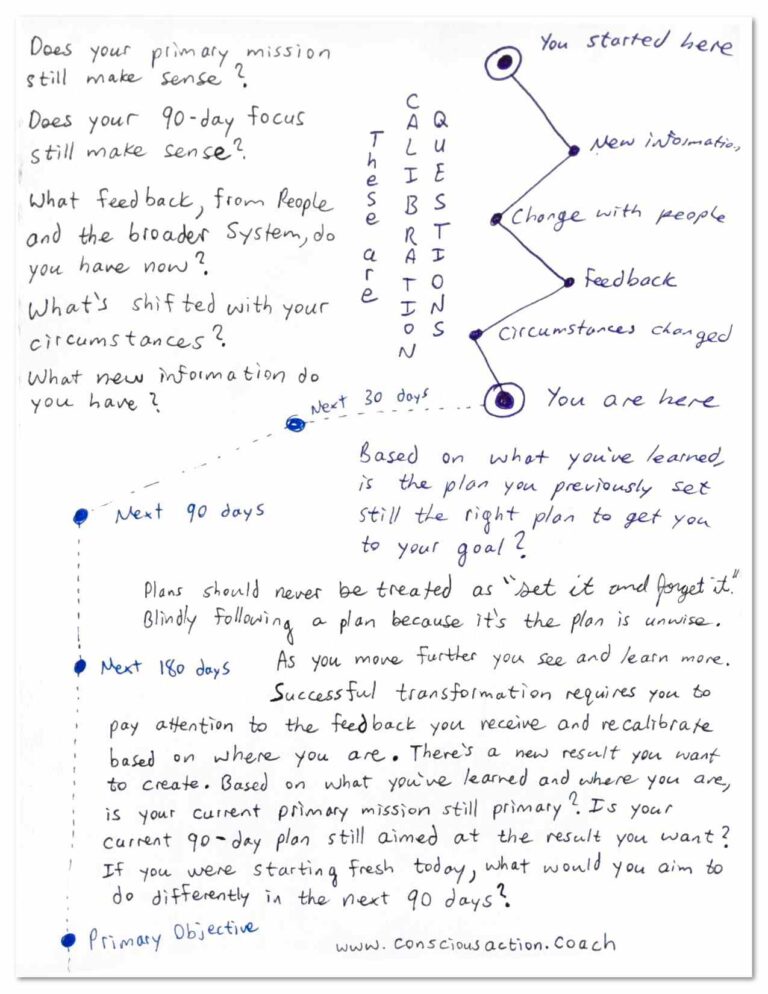 Does your primary mission
still make sense?
Does your 90-day focus
still make sense?
What feedback, from People
and the broader System, do
you have now?
What's shifted with your
circumstances?
What new information do
you have?
These are
CALIBRATION
QUESTIONS
You started here
New information
Change with people
Feedback
Circumstances changed
You are here
Next 30 days
Next 90 days
Based on what you've learned,
is the plan you previously set
still the right plan to get you
to your goal?
Plans should never be treated as "set it and forget it."
Blindly following a plan because it's the plan is unwise.
Next 180 days
As you move further you see and learn more.
Successful transformation requires you to
pay attention to the feedback you receive and recalibrate
based on where you are. There's a new result you want
to create. Based on what you've learned and where you are,
is your current primary mission still primary? Is your
current 90-day plan still aimed at the result you want?
If you were starting fresh today, what would you aim to
do differently in the next 90 days?
Primary Objective
www.consciousaction.coach